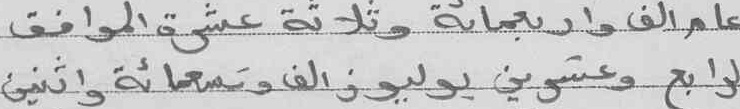 عام الف واربعمائة وثلاثة عشرة الموافق
لرابع وعشرين يوليوز الف وتسعمائة واثنين